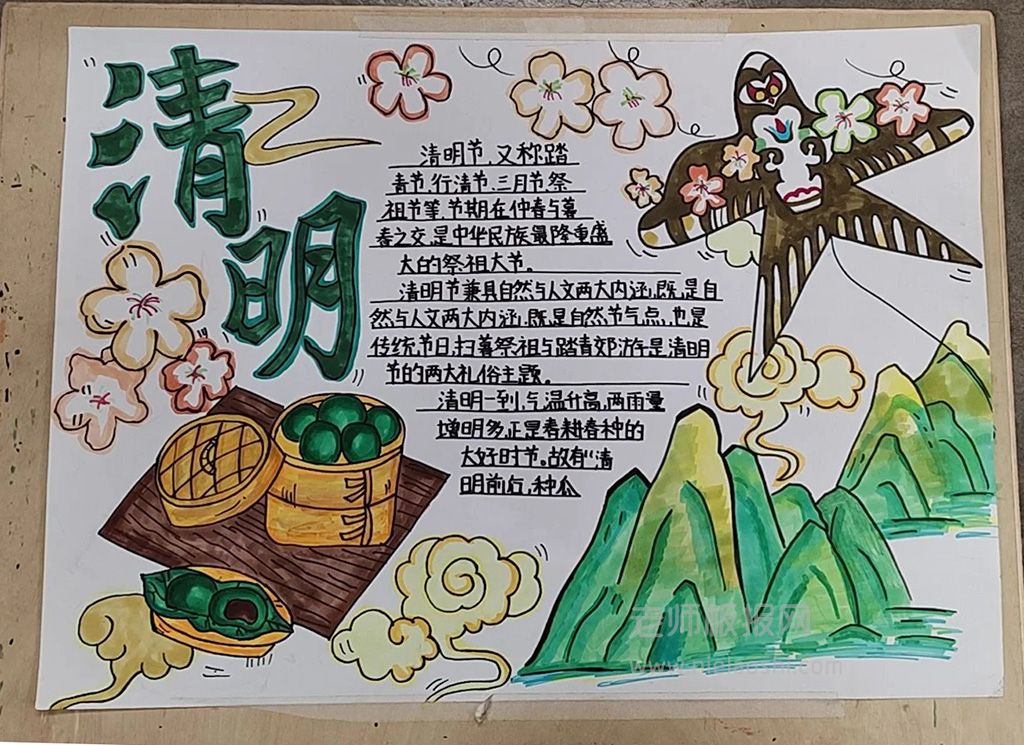 清明
清明节,又称踏
青节、行清节、三月节祭
祖节等,节期在仲春与暮
春之交,是中华民族最隆重盛
大的祭祖大节。
清明节兼具自然与人文两大内涵,既,是自
然与人文两大内涵,既是自然节气点,也是
传统节日,扫墓祭祖与踏青郊游是清明
节的两大礼俗主题。
清明一到,气温升高,雨雨量
增明多,正是春耕春种的
大好时节。故有“清
明前后,种瓜
老师板报网